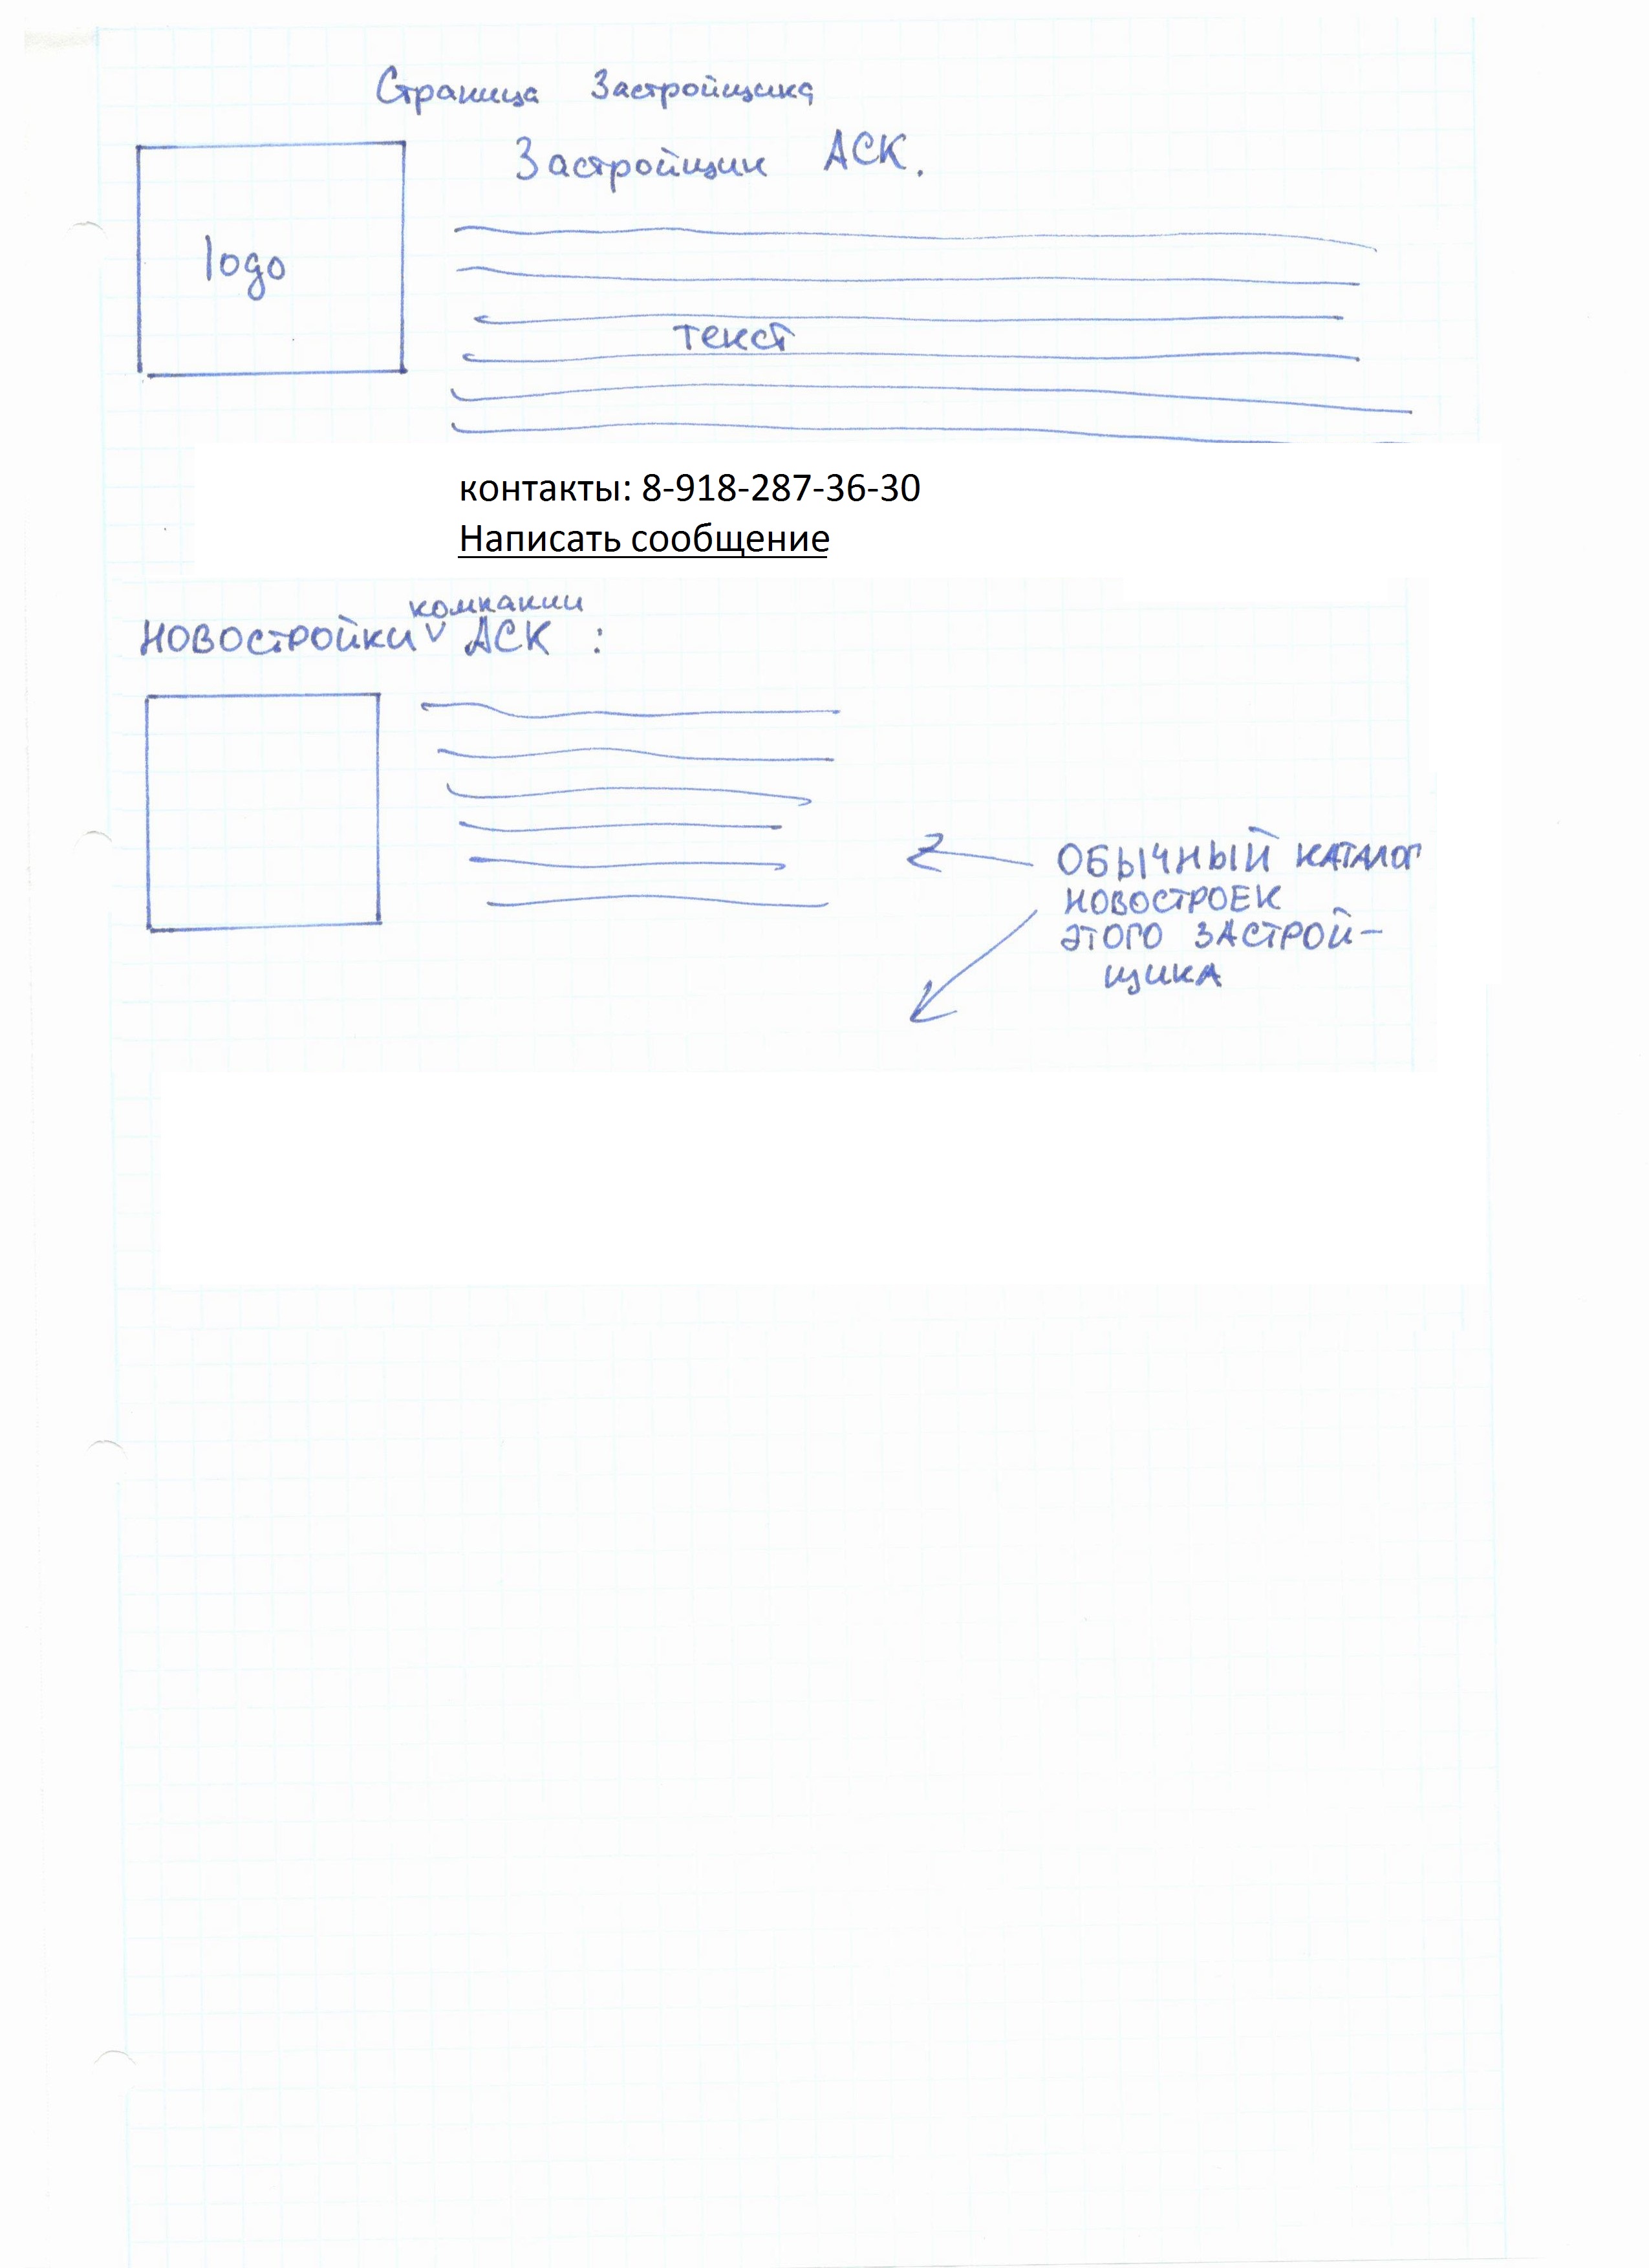 Страница Застройщика
Застройщик АСК.
logo
текст
контакты: 8-918-287-36-30
Написать сообщение
компании
НОВОСТРОЙКИ V АСК :
ОБЫЧНЫЙ КАТАЛОГ
НОВОСТРОЕК
ЭТОГО ЗАСТРОЙ-
ЩИКА